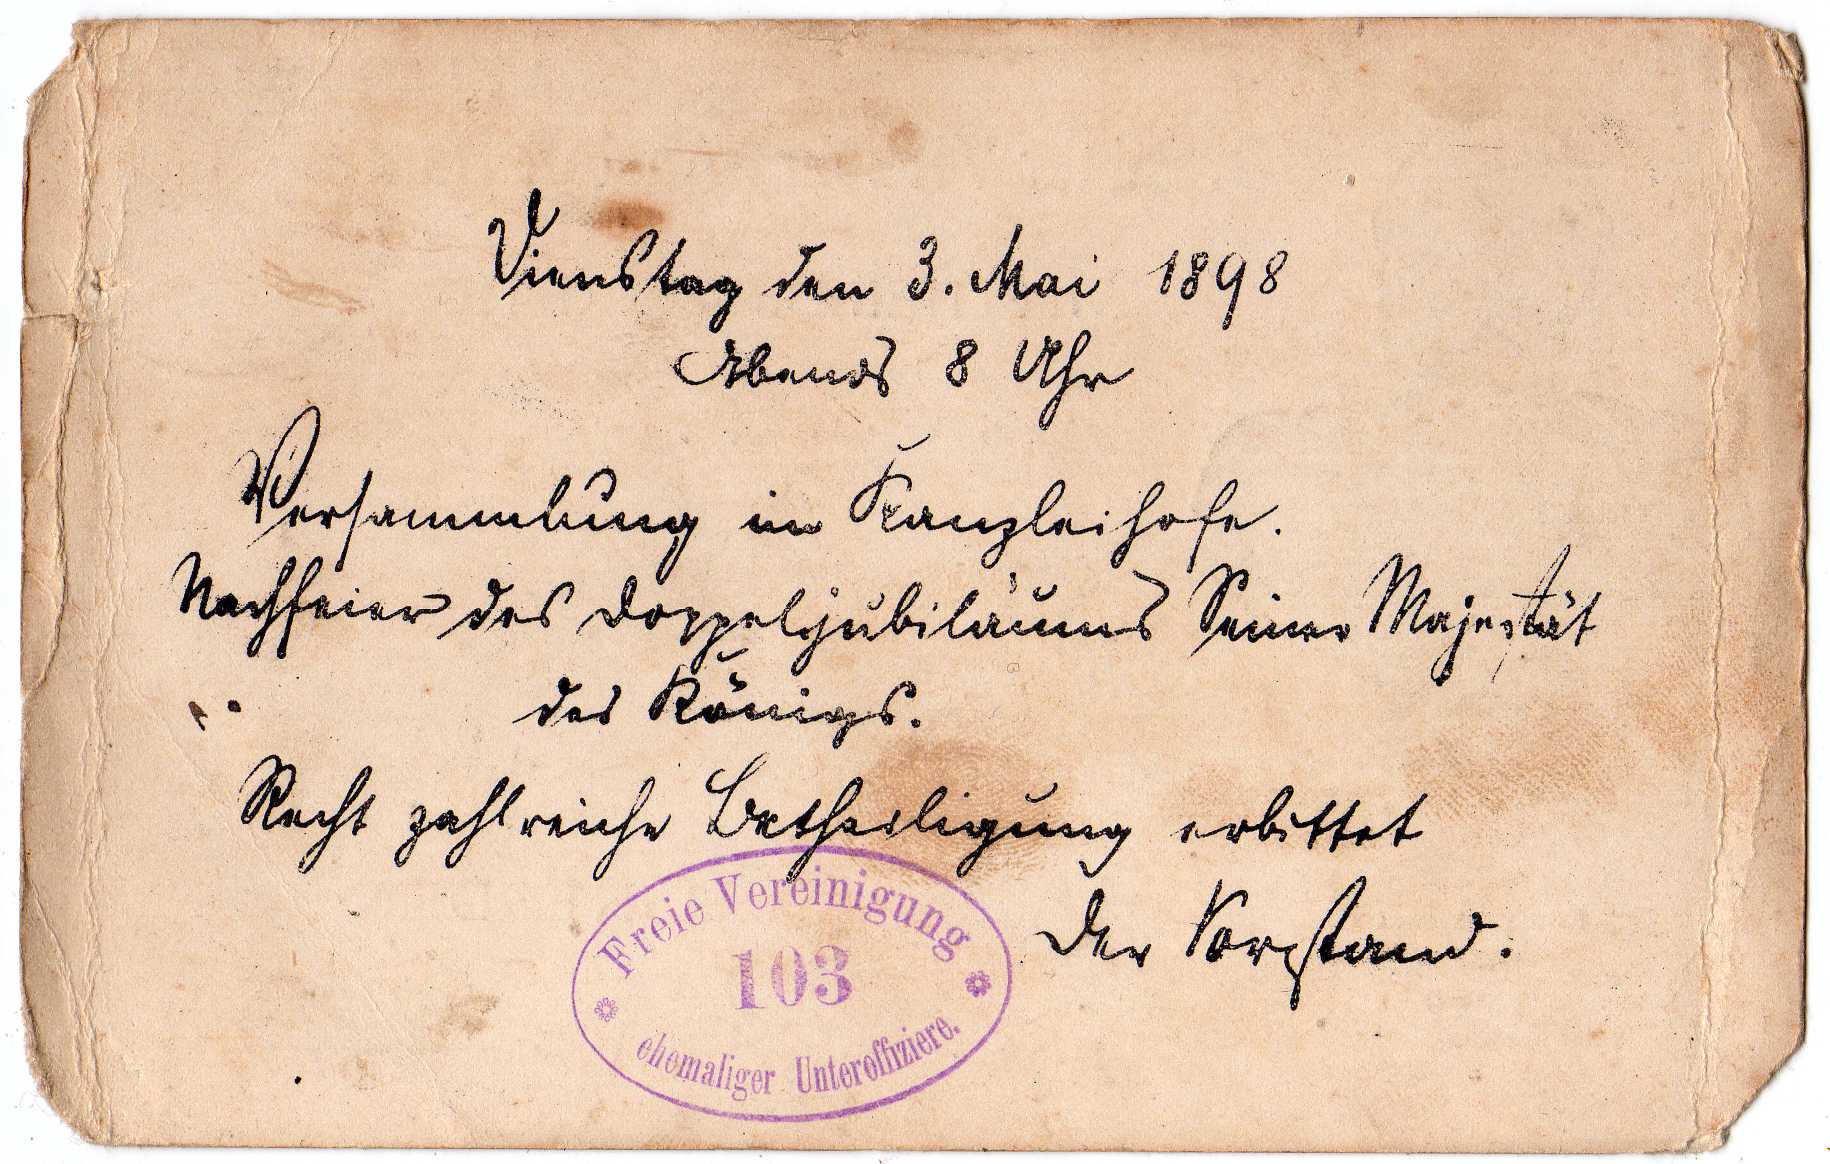 Dienstag den 3. Mai 1898
Abends 8 Uhr
Versammlung im Kanzleihofe.
Nachfeier des Doppeljubiläums Seiner Majestät
des Königs.
Recht zahlreiche Betheiligung erbittet
Der Vorstand.
Freie Vereinigung
103
ehemaliger Unteroffiziere.